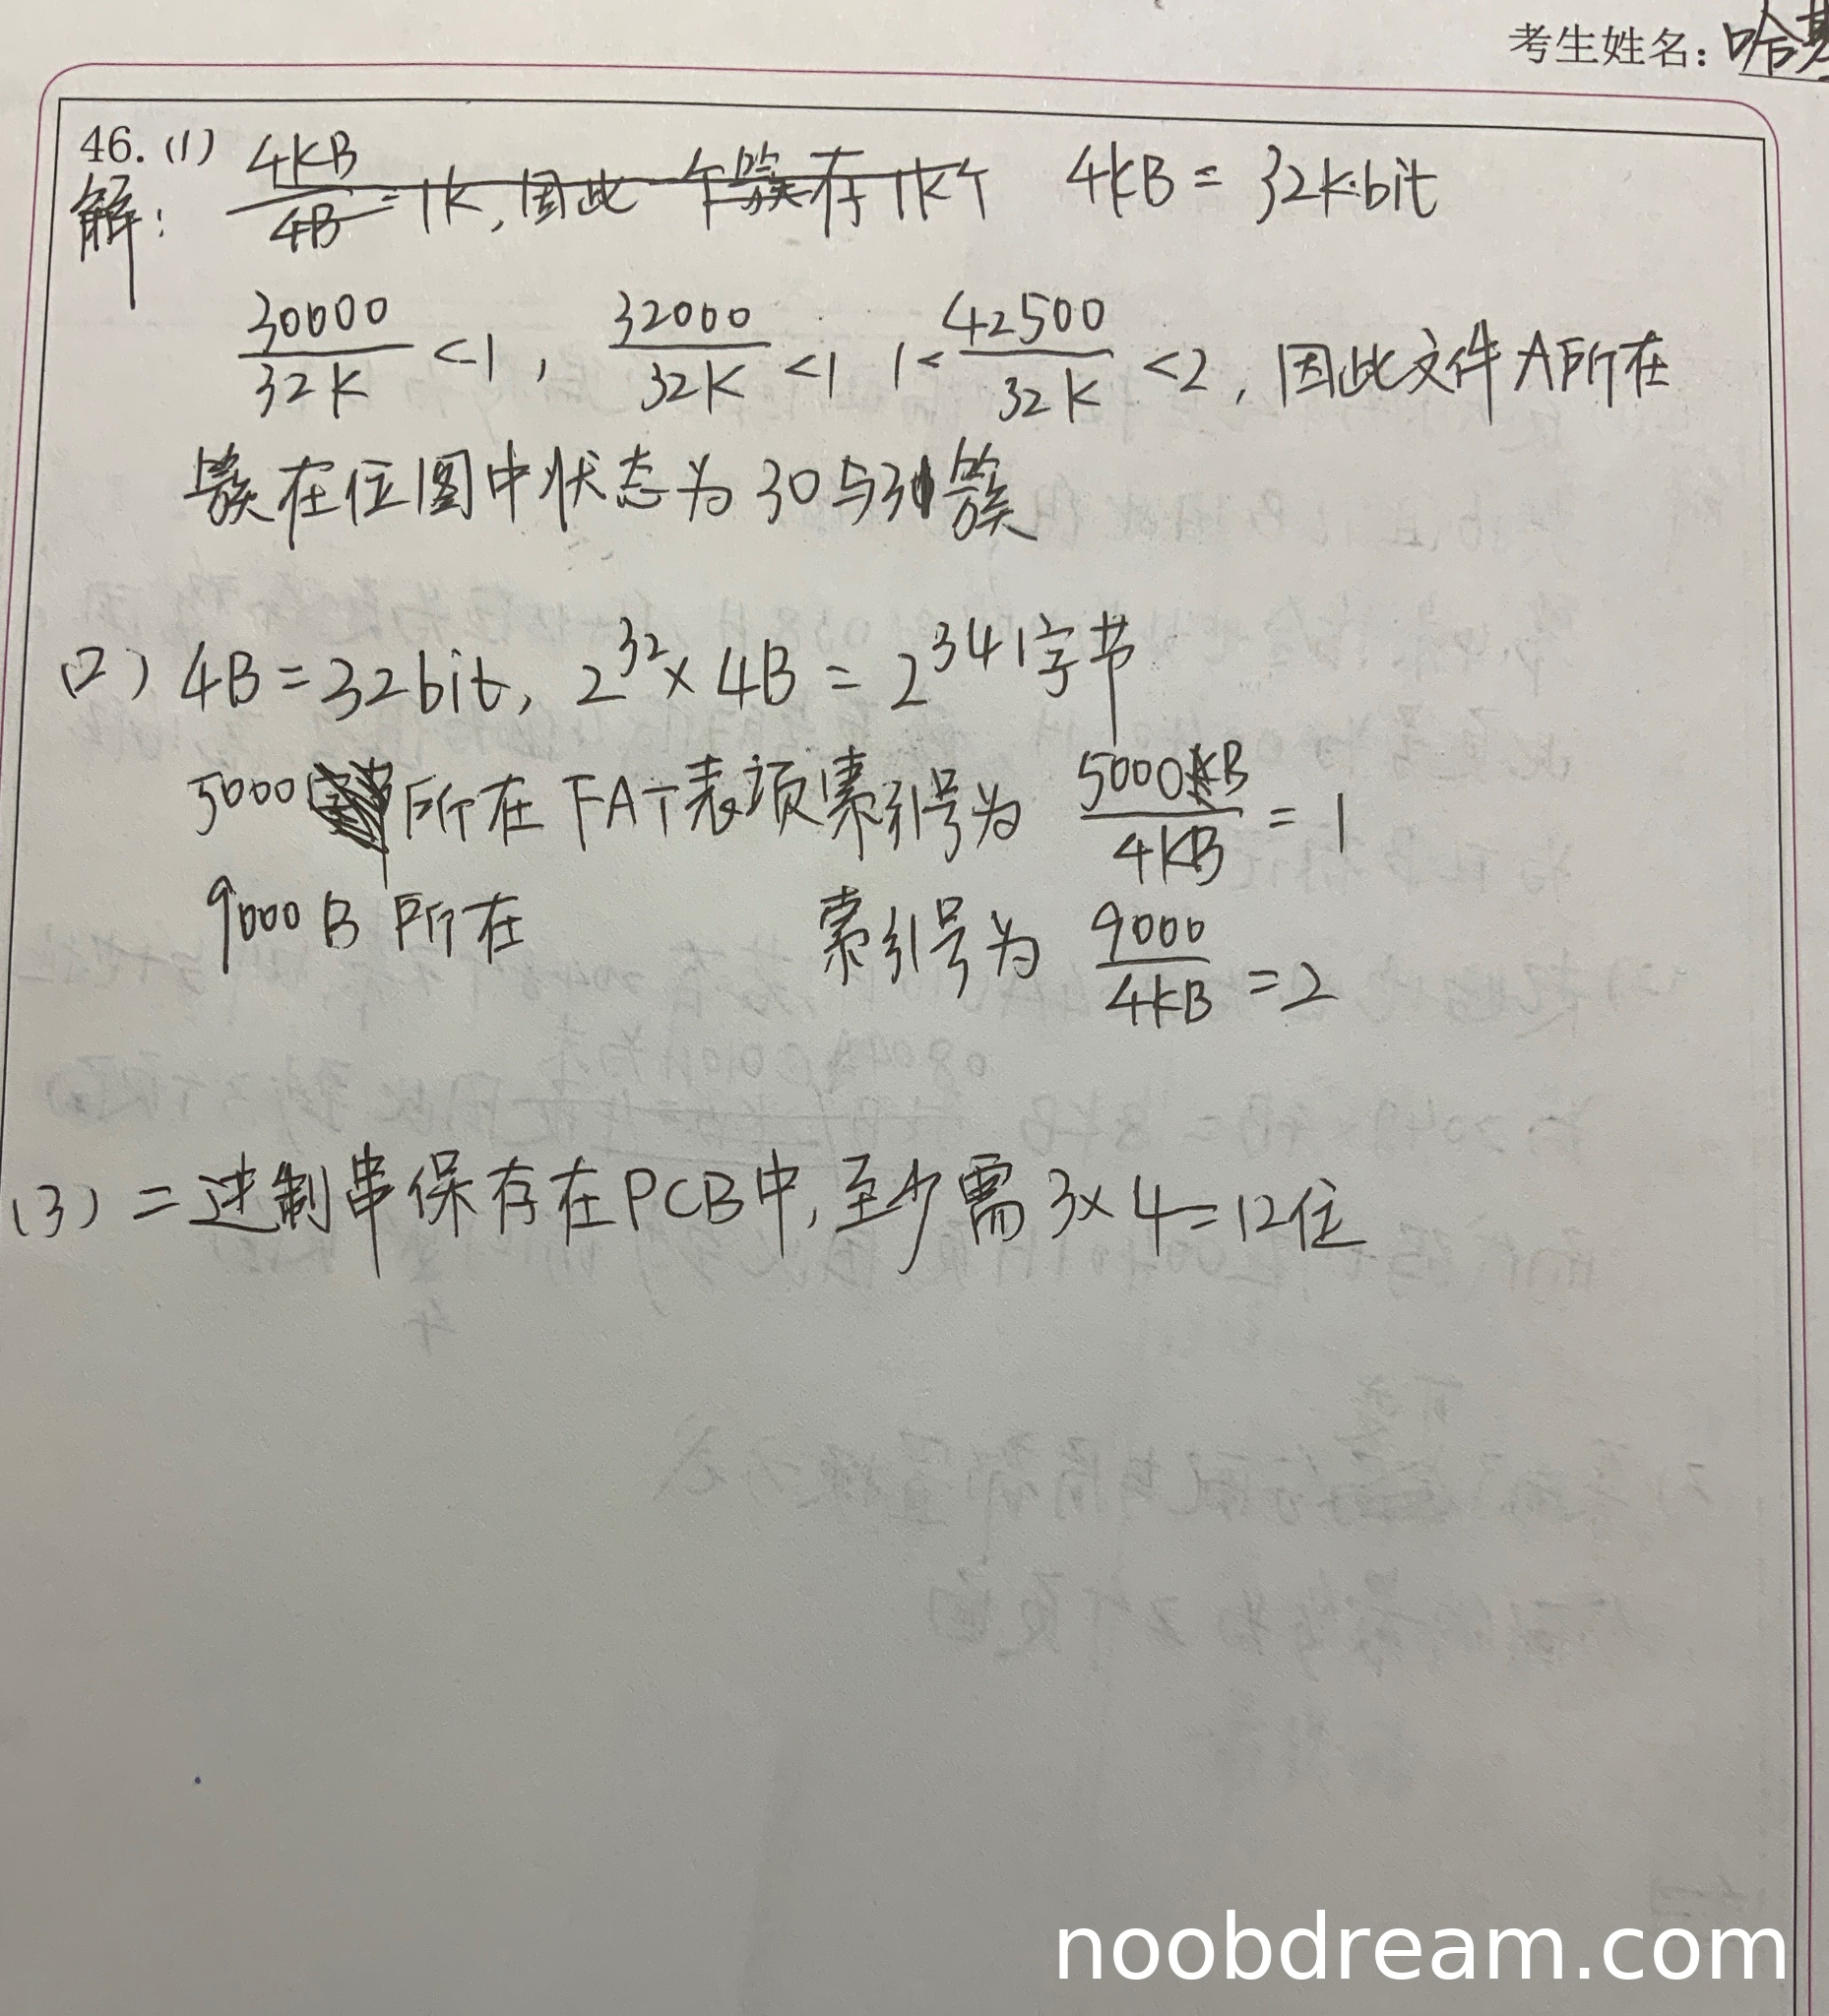 考生姓名：哈基
46.(1)
解：4KB/4B=1K,因此一个簇存1K个 4KB=32K·bit
30000/32K<1, 32000/32K<1 1<42500/32K<2,因此文件A所在
簇在位图中状态为30与31簇
(2) 4B=32bit, 2^32×4B=2^34个字节
5000所在FAT表项索引号为 5000KB/4KB=1
9000B所在 索引号为 9000/4KB=2
(3) 二进制串保存在PCB中,至少需3×4=12位
noobdream.com